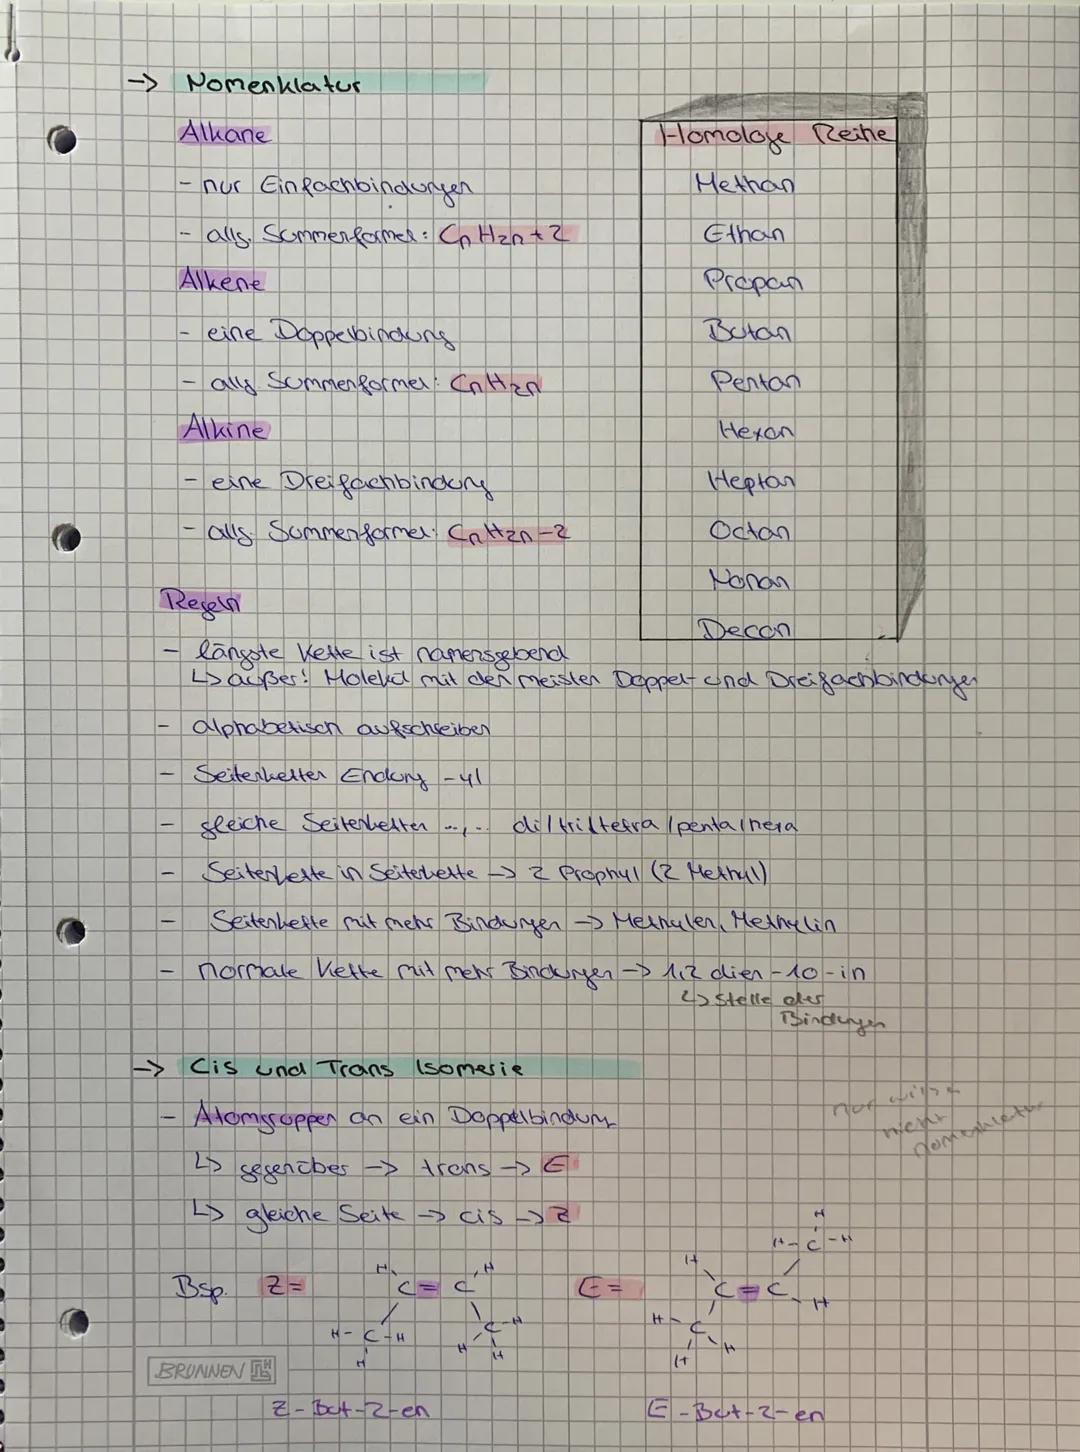 -> Nomenklatur
Alkane
- nur Einfachbindungen
- allg. Summenformel: CnH2n+2
Alkene
- eine Doppelbindung
- allg. Summenformel: CnH2n
Alkine
- eine Dreifachbindung
- allg. Summenformel: CnH2n-2
Homologe Reihe
Methan
Ethan
Propan
Butan
Pentan
Hexan
Heptan
Octan
Nonan
Decan
Regeln
- längste Kette ist namensgebend
↳ außer! Molekül mit den meisten Doppel- und Dreifachbindungen
- alphabetisch aufschreiben
- Seitenketten Endung -yl
- gleiche Seitenketten ..,.. di/tri/tetra/penta/hexa
- Seitenkette in Seitenkette -> 2 Prophyl (2 Methyl)
- Seitenkette mit mehr Bindungen -> Methylen, Methylin
- normale Kette mit mehr Bindungen -> 1,2 dien -10-in
↳ Stelle der
Bindungen
-> Cis und Trans Isomerie
- Atomgruppen an ein Doppelbindung
nur
nicht
Nomenklatur
↳ gegenüber -> trans -> E
↳ gleiche Seite -> cis -> Z
Bsp. Z=
H C = C H
H-C-H C-H
H H H
E=
H
H-C-H
H C=C H
H-C H
H
BRUNNEN
Z-But-2-en
E-But-2-en